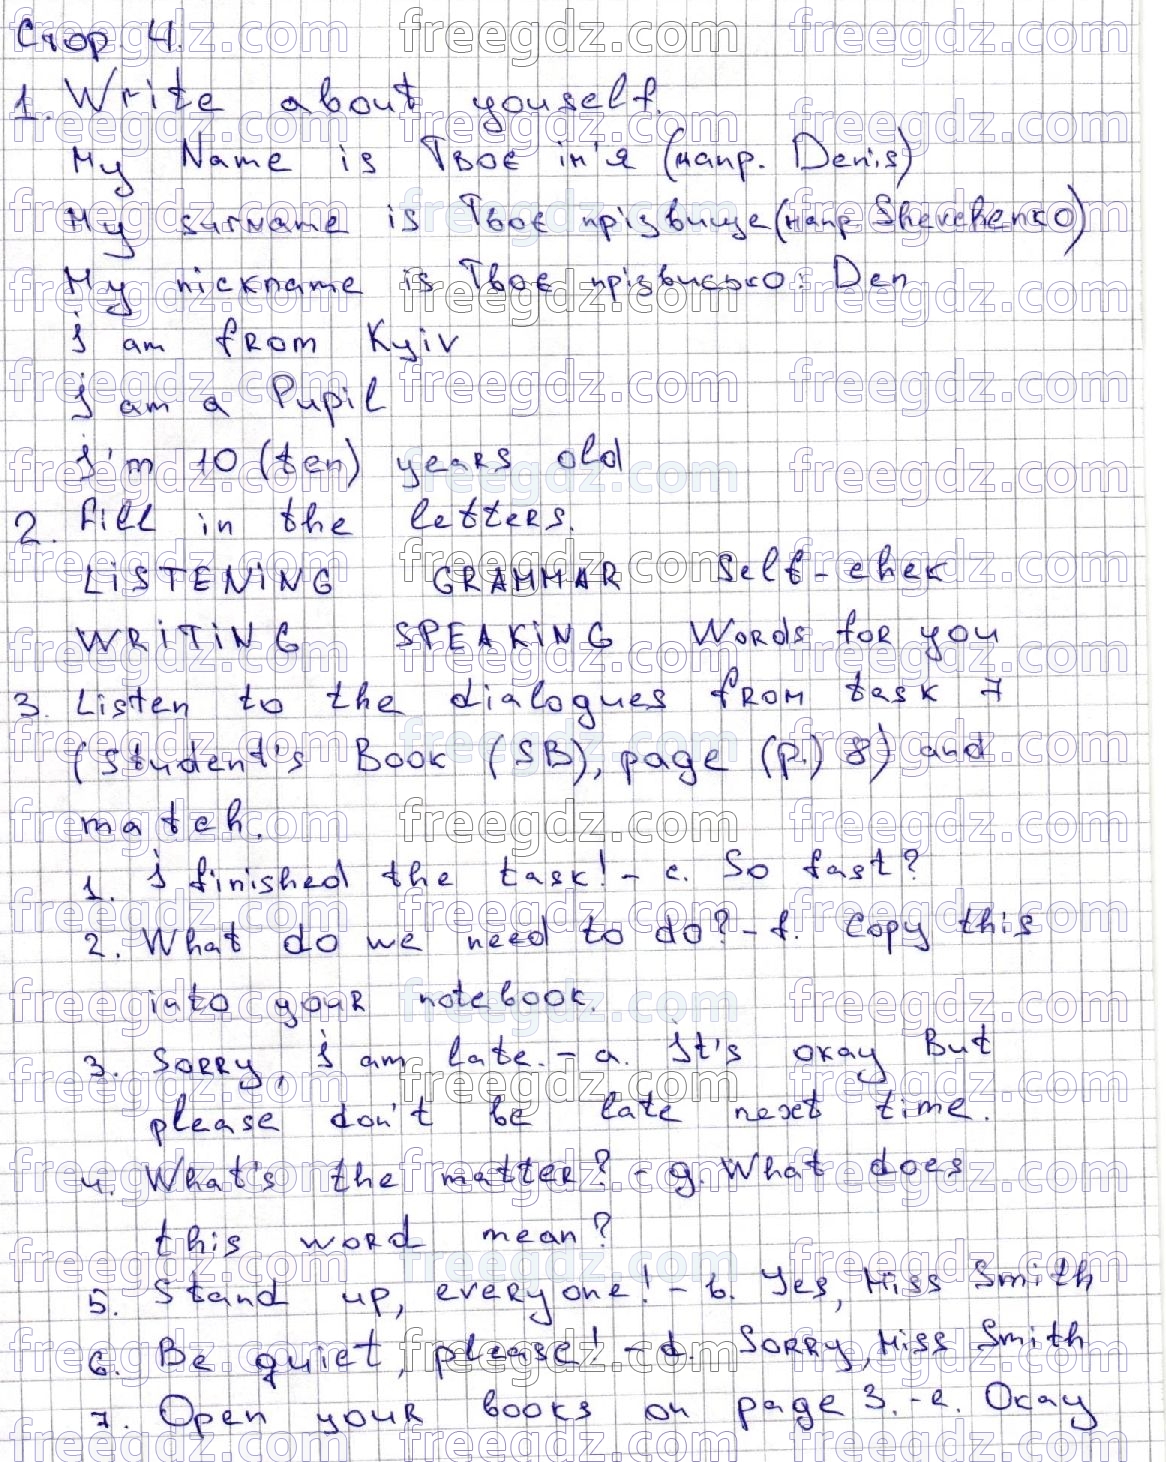 Стор 4.
1. Write about youself.
My Name is Твоє ім'я (напр. Denis)
My surname is Твоє прізвище (напр Shevchenko)
My nickname is Твоє прізвисько: Den
i am from Kyiv
i am a Pupil
i'm 10 (ten) years old
2. Fill in the letters.
LiSTENiNG GRAMMAR Self-chek
WRiTiNG SPEAKiNG Words for you
3. Listen to the dialogues from task 7
(Student's Book (SB), page (p.) 8) and
match.
1. i finished the task! - c. So fast?
2. What do we need to do? - f. Copy this
into your notebook.
3. Sorry, i am late. - a. it's okay But
please don't be late next time.
4. What's the matter? - g. What does
this word mean?
5. Stand up, everyone! - b. Yes, Miss Smith
6. Be quiet, please! - d. Sorry, Miss Smith
7. Open your books on page 3. - e. Okay
freegdz.com